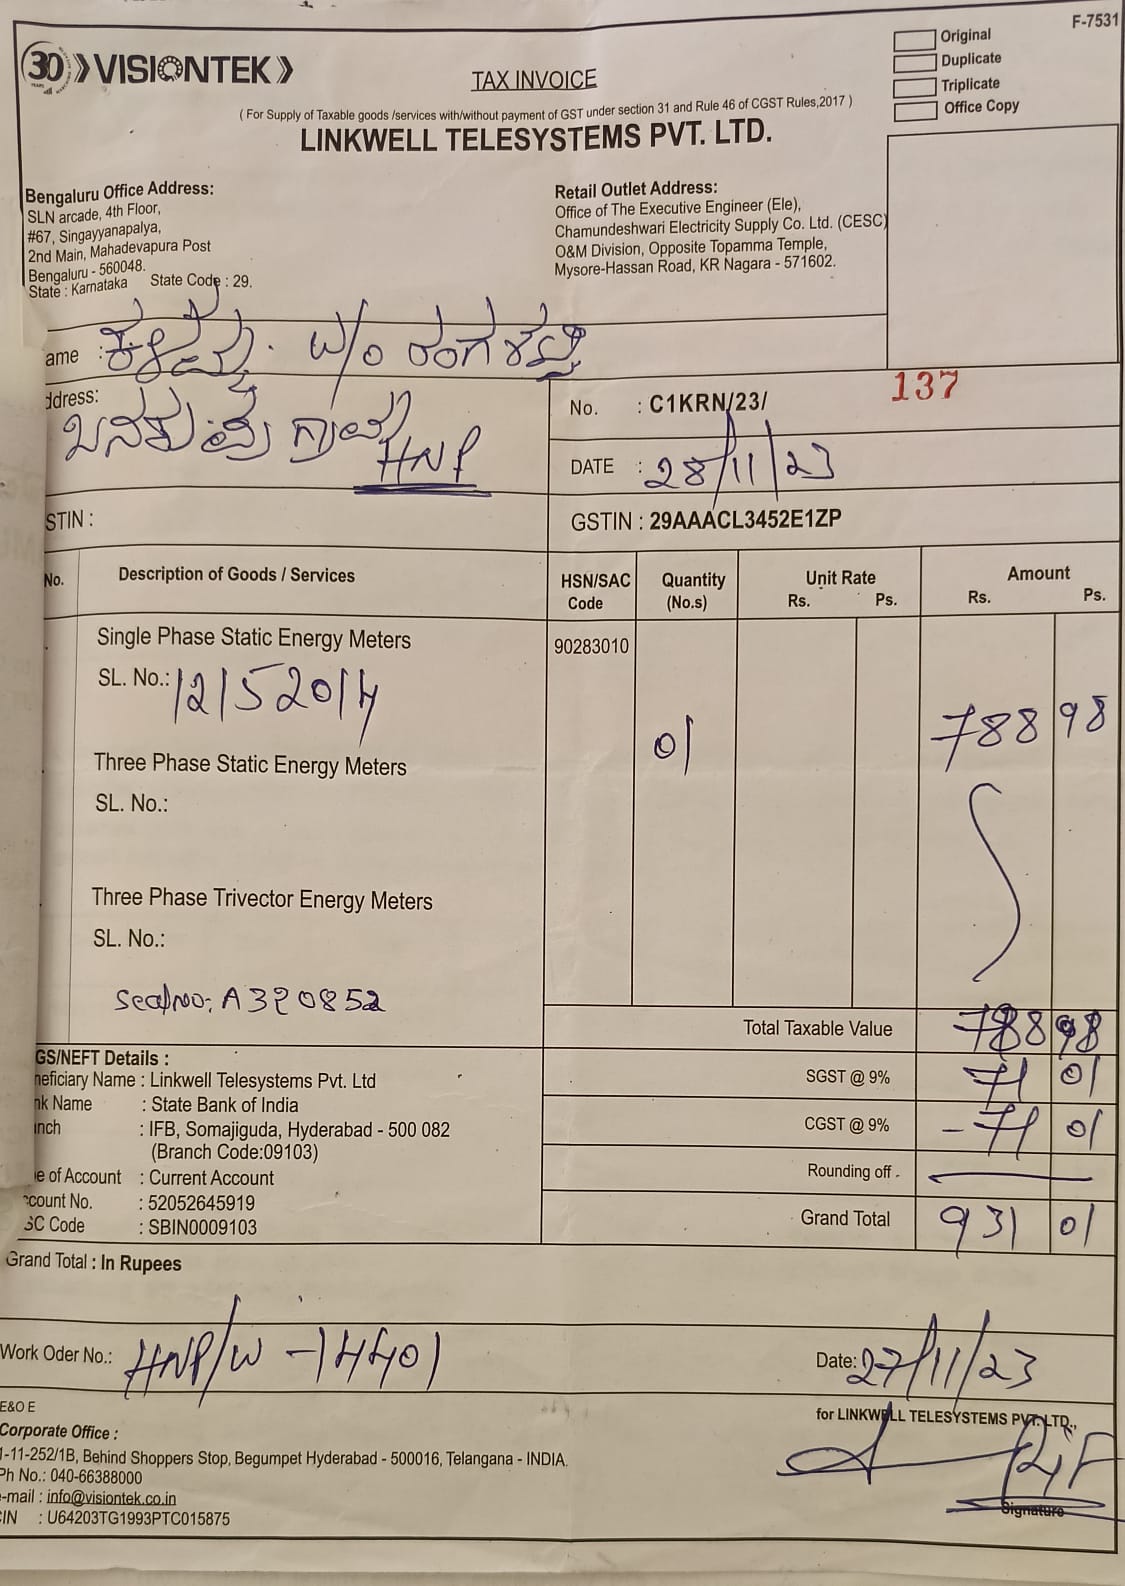 F-7531
Original
Duplicate
Triplicate
Office Copy
30 YEARS VISIONTEK
TAX INVOICE
( For Supply of Taxable goods /services with/without payment of GST under section 31 and Rule 46 of CGST Rules,2017 )
LINKWELL TELESYSTEMS PVT. LTD.
Bengaluru Office Address:
SLN arcade, 4th Floor,
#67, Singayyanapalya,
2nd Main, Mahadevapura Post
Bengaluru - 560048.
State : Karnataka State Code : 29.
Retail Outlet Address:
Office of The Executive Engineer (Ele),
Chamundeshwari Electricity Supply Co. Ltd. (CESC)
O&M Division, Opposite Topamma Temple,
Mysore-Hassan Road, KR Nagara - 571602.
ame : W/o
ddress:
ಗ್ರಾಮ
HNP
No. : C1KRN/23/ 137
DATE : 28/11/23
STIN :
GSTIN : 29AAACL3452E1ZP
No. Description of Goods / Services HSN/SAC Code Quantity (No.s) Unit Rate Rs. Ps. Amount Rs. Ps.
Single Phase Static Energy Meters 90283010
SL. No.: 12152014 01 788 98
Three Phase Static Energy Meters
SL. No.:
Three Phase Trivector Energy Meters
SL. No.:
Seal no: A320852
Total Taxable Value 788 98
SGST @ 9% 71 01
CGST @ 9% 71 01
Rounding off -
Grand Total 931 01
GS/NEFT Details :
neficiary Name : Linkwell Telesystems Pvt. Ltd
nk Name : State Bank of India
nch : IFB, Somajiguda, Hyderabad - 500 082
(Branch Code:09103)
e of Account : Current Account
count No. : 52052645919
SC Code : SBIN0009103
Grand Total : In Rupees
Work Oder No.: HNP/W -14401 Date: 27/11/23
E&O E
for LINKWELL TELESYSTEMS PVT. LTD.,
Corporate Office :
1-11-252/1B, Behind Shoppers Stop, Begumpet Hyderabad - 500016, Telangana - INDIA.
Ph No.: 040-66388000
-mail : info@visiontek.co.in
CIN : U64203TG1993PTC015875
Signature